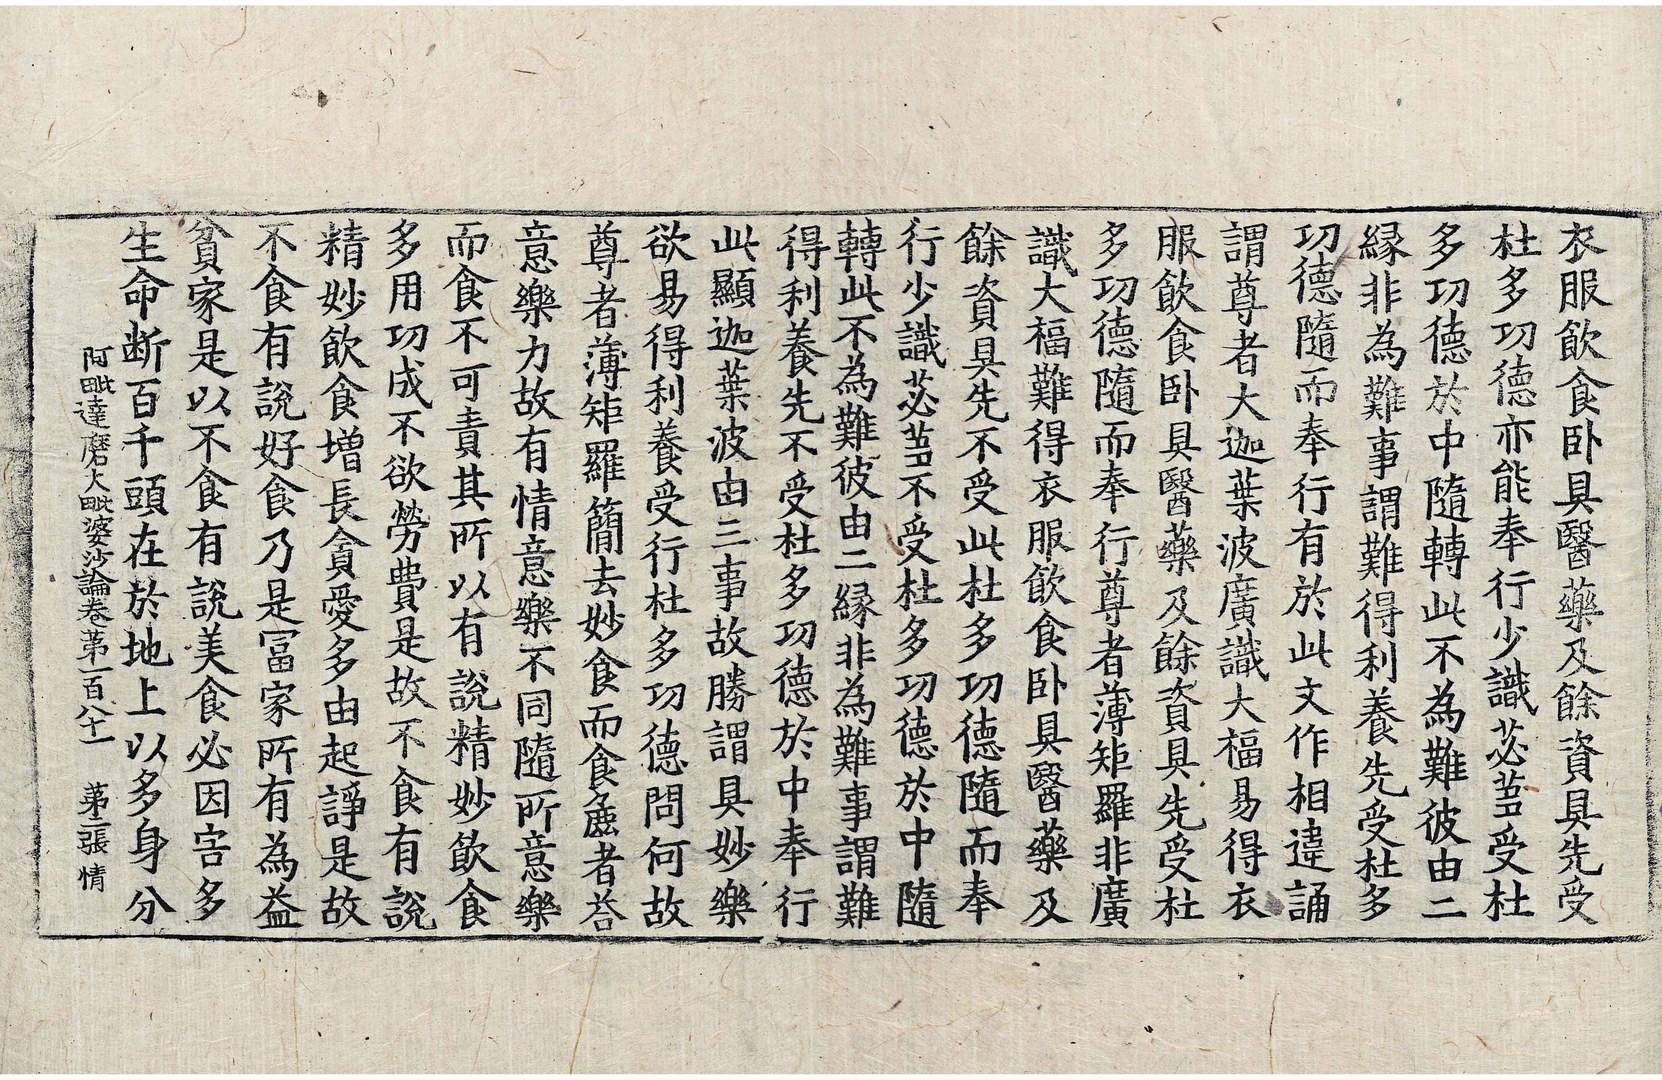 衣服飲食卧具醫藥及餘資具先受
杜多功德亦能奉行少識苾芻受杜
多功德於中隨轉此不為難彼由二
緣非為難事謂難得利養先受杜多
功德隨而奉行有於此文作相違誦
謂尊者大迦葉波廣識大福易得衣
服飲食卧具醫藥及餘資具先受杜
多功德隨而奉行尊者薄矩羅非廣
識大福難得衣服飲食卧具醫藥及
餘資具先不受此杜多功德隨而奉
行少識苾芻不受杜多功德於中隨
轉此不為難彼由二緣非為難事謂難
得利養先不受杜多功德於中奉行
此顯迦葉波由三事故勝謂具妙樂
欲易得利養受行杜多功德問何故
尊者薄矩羅簡去妙食而食麁者荅
意樂力故有情意樂不同隨所意樂
而食不可責其所以有說精妙飲食
多用功成不欲勞費是故不食有說
精妙飲食增長貪愛多由起諍是故
不食有說好食乃是冨家所有為益
貧家是以不食有說美食必因害多
生命断百千頭在於地上以多身分
阿毗達磨大毗婆沙論卷第一百八十一 第三張 情